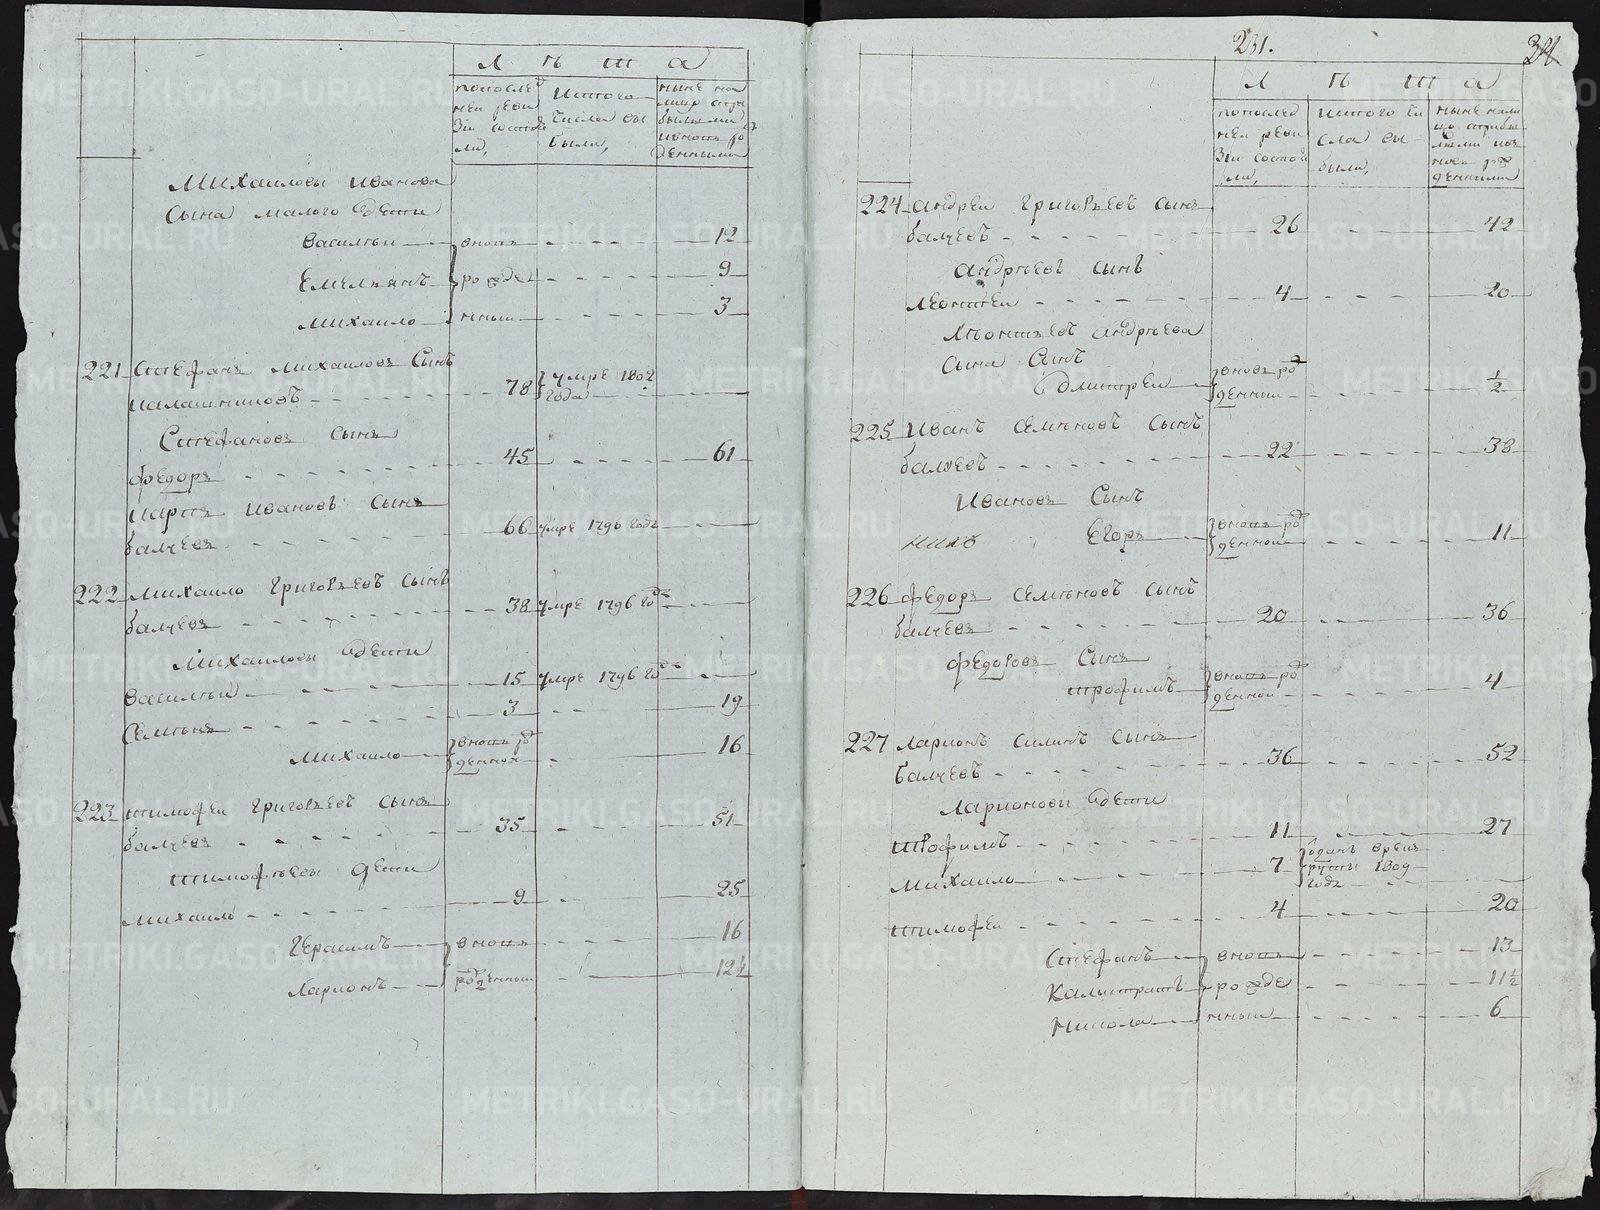 Л ѣ т а
по после
ней реви
зіи состоя
ли,
ис того
числа вы
были,
ныне на
лицо с при
былыми
и вновь ро
жденными
Михаиловы Иванова
сына малого дети
Василеи вновь 12
Емельянъ рожде 9
Михаило нныи 3
221 Стефанъ Михаиловъ сынъ
Калашниковъ 78 умре 1802
года
Стефановъ сынъ
Федоръ 45 61
Карпъ Ивановъ сынъ
балчевъ 66 умре 1796 года
222 Михаило Григорьевъ сынъ
балчевъ 38 умре 1796 год
Михаиловы дети
Василеи 15 умре 1796 год
Семенъ 3 19
Михаило вновь рож
денной 16
223 Тимофеи Григорьевъ сынъ
балчевъ 35 51
Тимофеевы дети
Михаило 9 25
Герасимъ вновь 16
Ларионъ рожденныи 12½
231.
Л ѣ т а
по послед
ней реви
зіи состоя
ли,
ис того чи
сла вы
были,
ныне нали
цо с прибы
лыми и в
новь рож
денными
224 Андреи Григорьевъ сынъ
балчевъ 26 42
Андреевъ сынъ
Леонтеи 4 20
Леонтьевъ Андреева
сына сынъ
Дмитреи вновь рож
денныи ½
225 Иванъ Семеновъ сынъ
балчевъ 22 38
Ивановъ сынъ
Егоръ вновь рож
денной 11
226 Федоръ Семеновъ сынъ
балчевъ 20 36
Федоровъ сынъ
Трофимъ вновь рож
денной 4
227 Ларионъ Силинъ сынъ
балчевъ 36 52
Ларионовы дети
Трофимъ 11 27
Михаило 7 отданъ в рек
руты 1809
года
Тимофеи 4 20
Стефанъ вновь 13
Калистратъ рожде 11½
Никола нныи 6